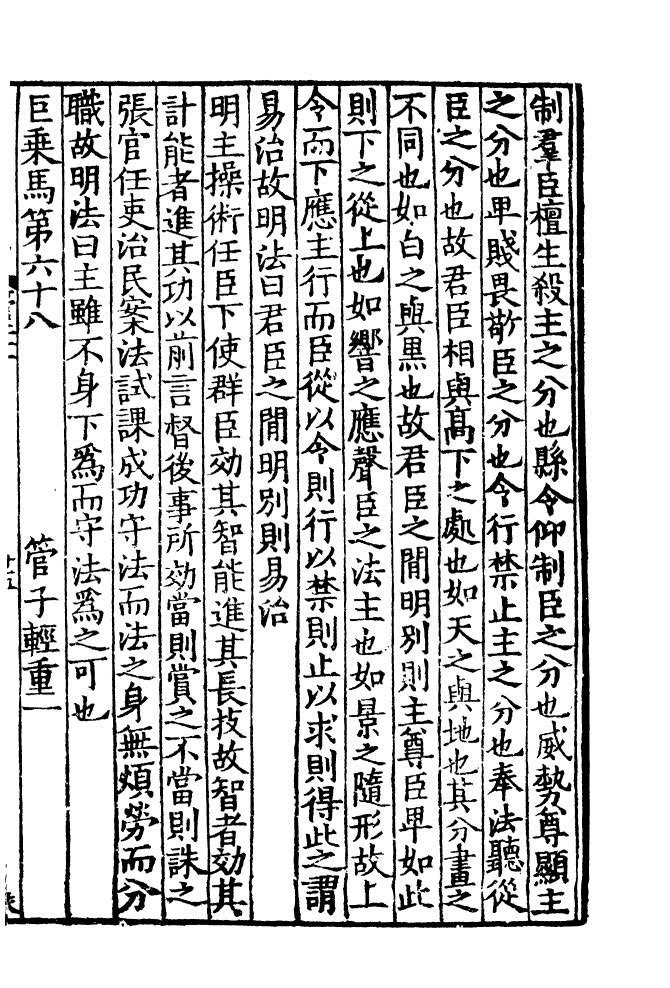 制羣臣檀生殺主之分也縣令仰制臣之分也威勢尊顯主
之分也卑賤畏敬臣之分也令行禁止主之分也奉法聽從
臣之分也故君臣相與高下之處也如天之與地也其分畫之
不同也如白之與黑也故君臣之閒明别則主尊臣卑如此
則下之從上也如響之應聲臣之法主也如景之隨形故上
令而下應主行而臣從以令則行以禁則止以求則得此之謂
易治故明法曰君臣之閒明别則易治
明主操術任臣下使群臣効其智能進其長技故智者効其
計能者進其功以前言督後事所効當則賞之不當則誅之
張官任吏治民案法試課成功守法而法之身無煩勞而分
職故明法曰主雖不身下爲而守法爲之可也
巨乗馬第六十八 管子輕重一
十五